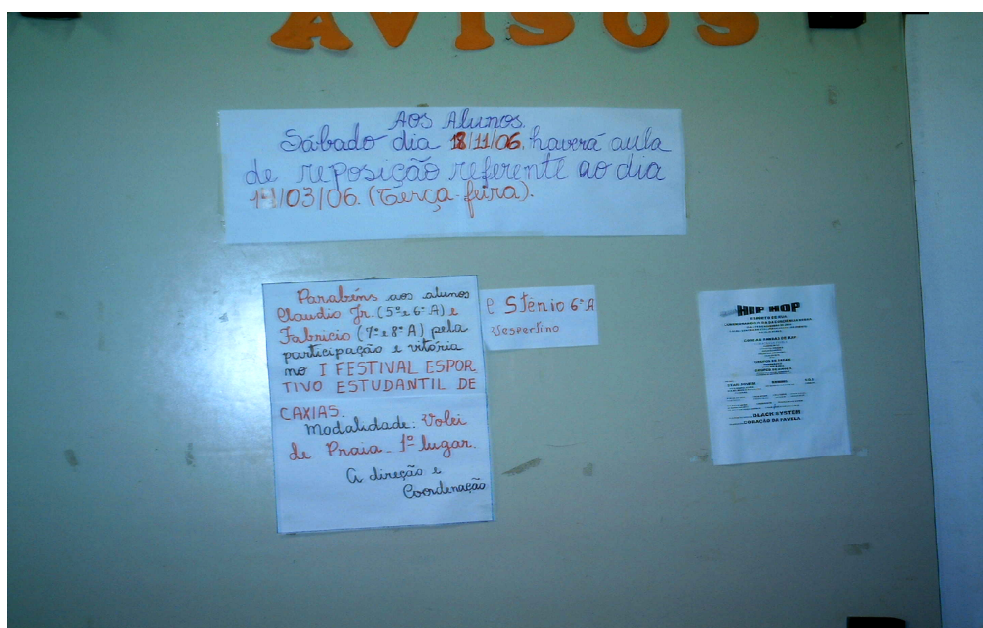 AVISOS
Aos Alunos.
Sábado dia 18/11/06. haverá aula
de reposição referente ao dia
14/03/06. (Terça-feira).
Parabéns aos alunos
Claudio Jr. (5ª e 6ª A) e
Fabricio (7ª e 8ª A) pela
participação e vitória
no I FESTIVAL ESPOR
TIVO ESTUDANTIL DE
CAXIAS.
Modalidade: Volei
de Praia - 1º lugar.
A direção e
Coordenação
e Stênio 6ª A
Vespertino
HIP HOP
BLACK SYSTEM
CORAÇÃO DA FAVELA